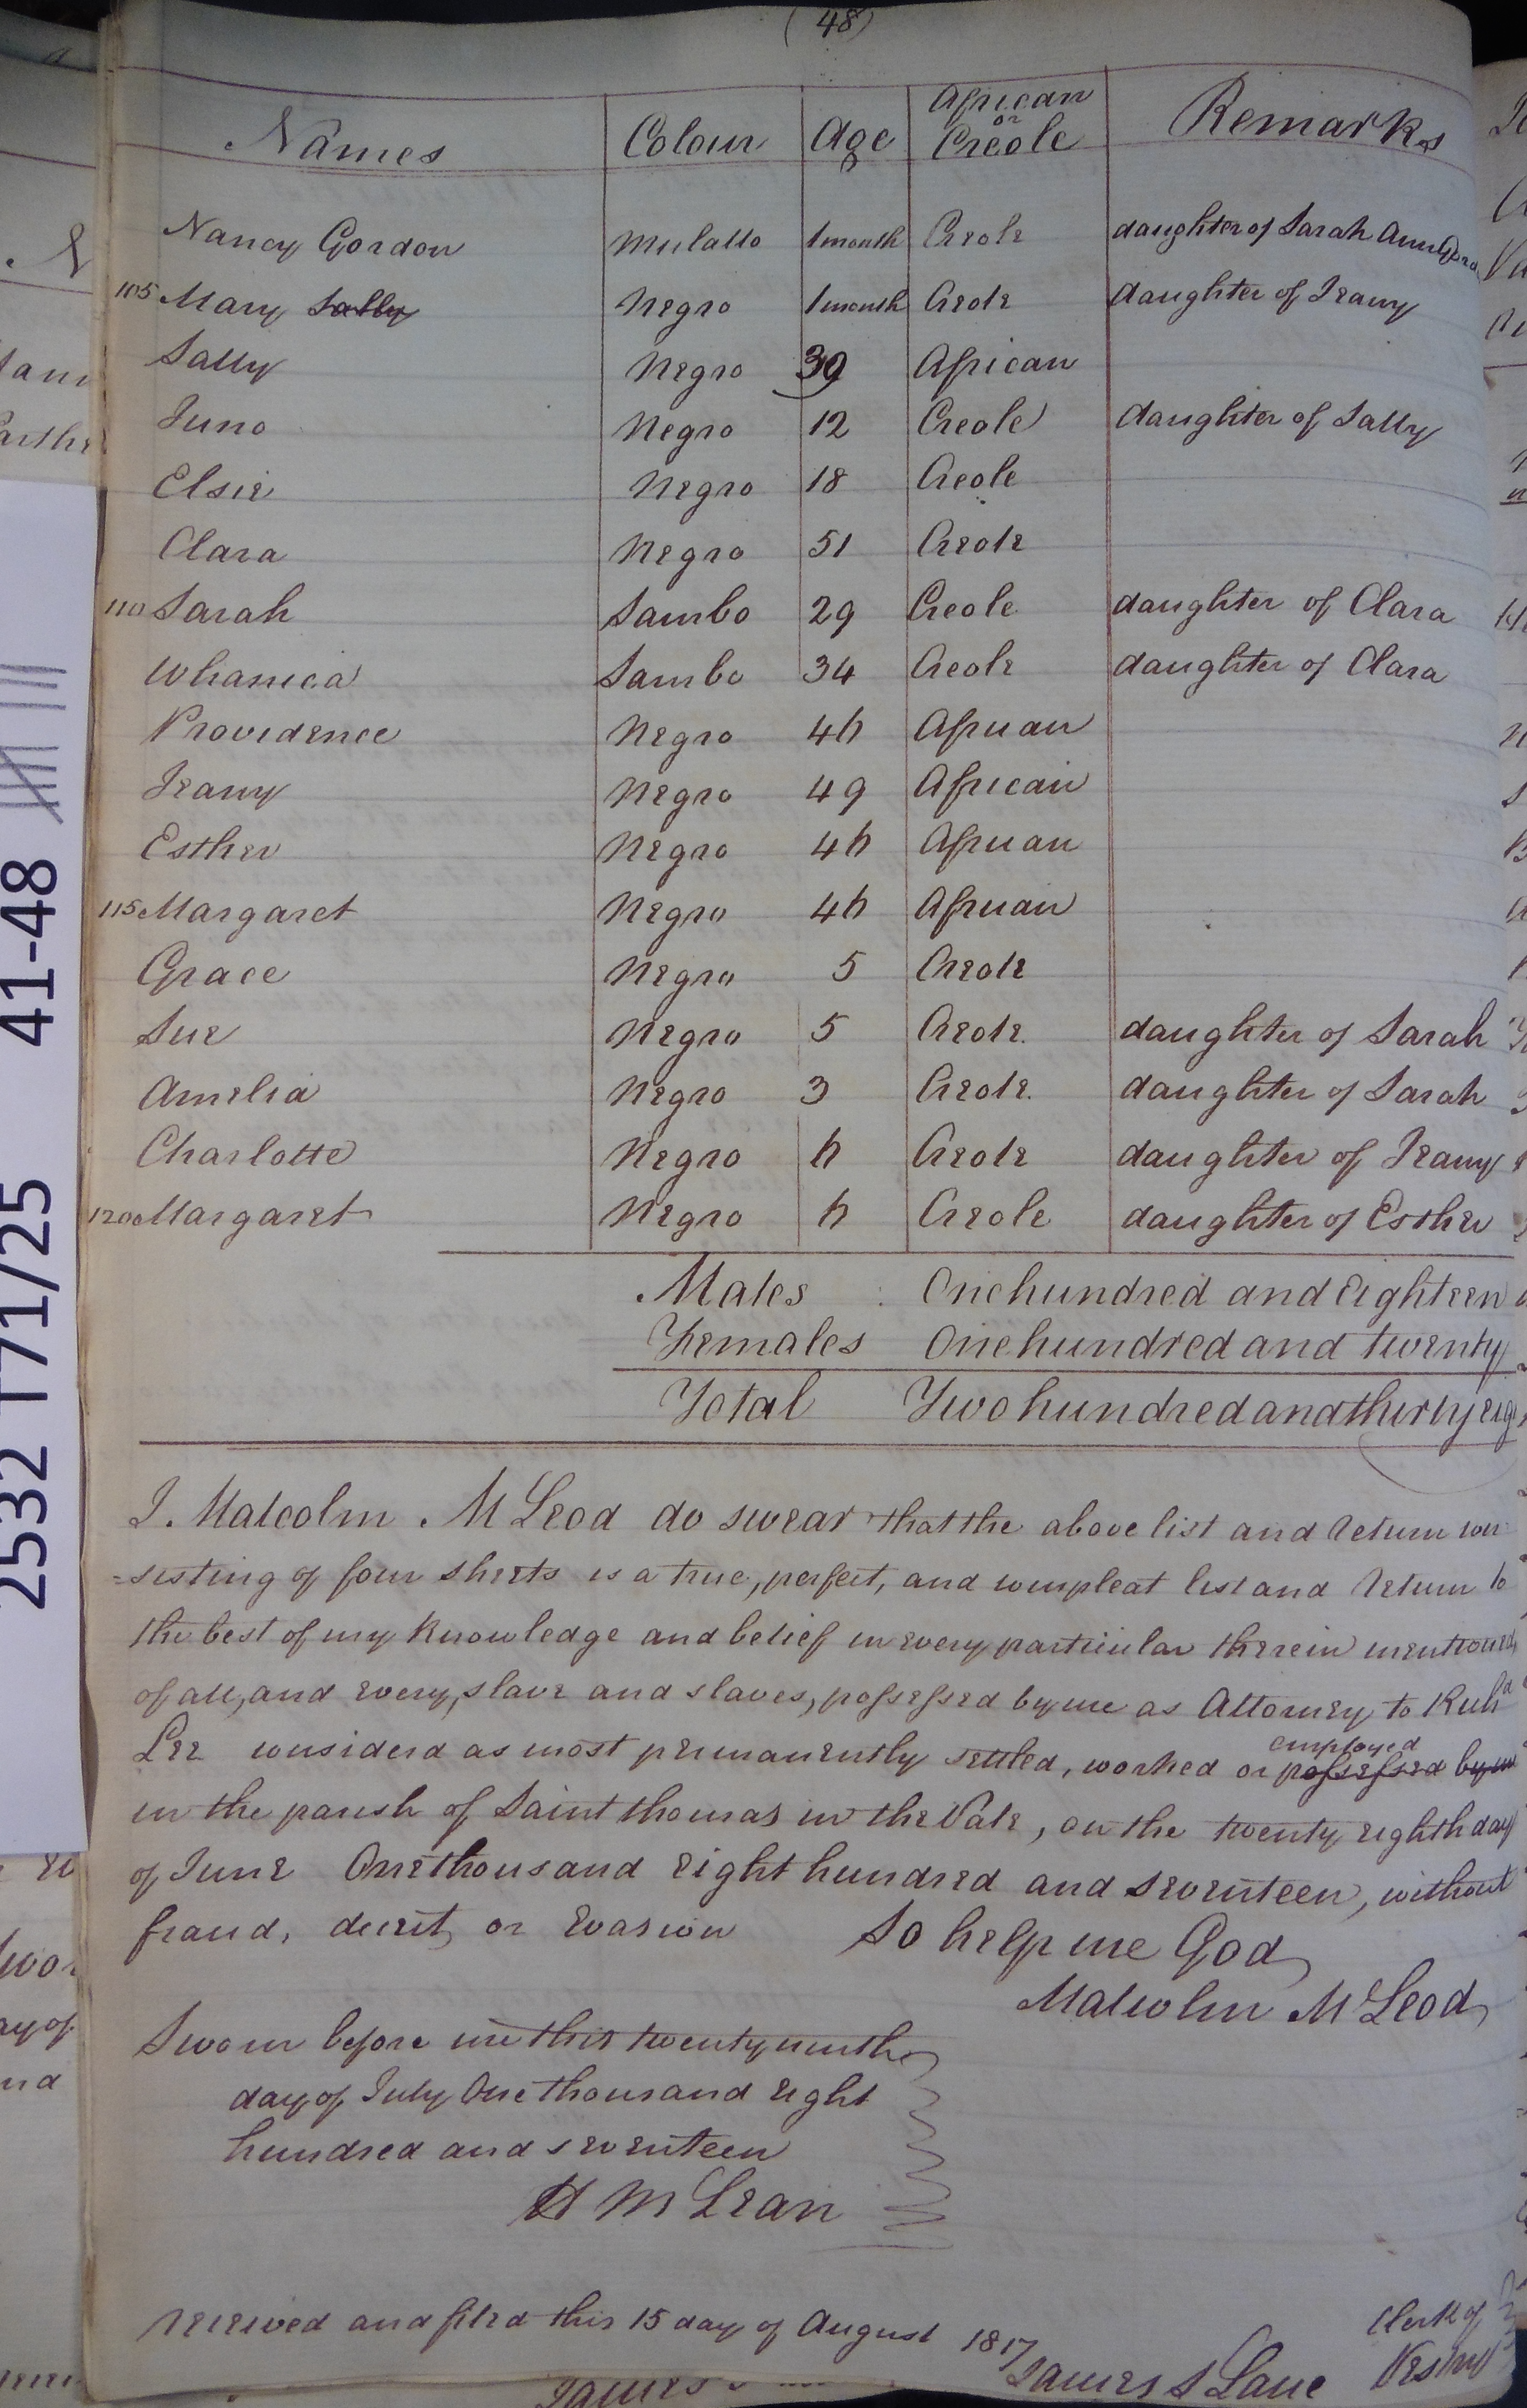 (48)
Names Colour Age African or Creole Remarks
Nancy Gordon Mulatto 1 month Creole daughter of Sarah Ann
105 Mary Sally Negro 1 month Creole daughter of Jeany
Sally Negro 39 African
Juno Negro 12 Creole daughter of Sally
Elsie Negro 18 Creole
Clara Negro 51 Creole
110 Sarah Sambo 29 Creole daughter of Clara
Whanica Sambo 34 Creole daughter of Clara
Providence Negro African
Jeany Negro 49 African
Esther Negro African
115 Margaret Negro African
Grace Negro 5 Creole
Sue Negro 5 Creole daughter of Sarah
Amelia Negro 3 Creole daughter of Sarah
Charlotte Negro Creole daughter of Jeany
120 Margaret Negro Creole daughter of Esther
Males One hundred and Eighteen
Females One hundred and twenty
Total Two hundred and thirty
I. Malcolm McLeod do swear that the above list and return con
=sisting of four sheets is a true, perfect, and compleat list and return to
the best of my knowledge and belief in every particular therein mentioned
of all, and every, slave and slaves, possessed by me as Attorney to Richd
Lee considerd as most permanently settled, worked or possessed by me employed
in the parish of Saint thomas in the Vale, on the twenty eighth day
of June One thousand eight hundred and seventeen, without
fraud, deceit, or Evasion So help me God
Malcolm McLeod
Sworn before me this twenty ninth
day of July One thousand eight
hundred and seventeen
H McLean
received and filed this 15 day of August 1817
James S Lane Clerk of Vestry
2532 T71/25 41-48